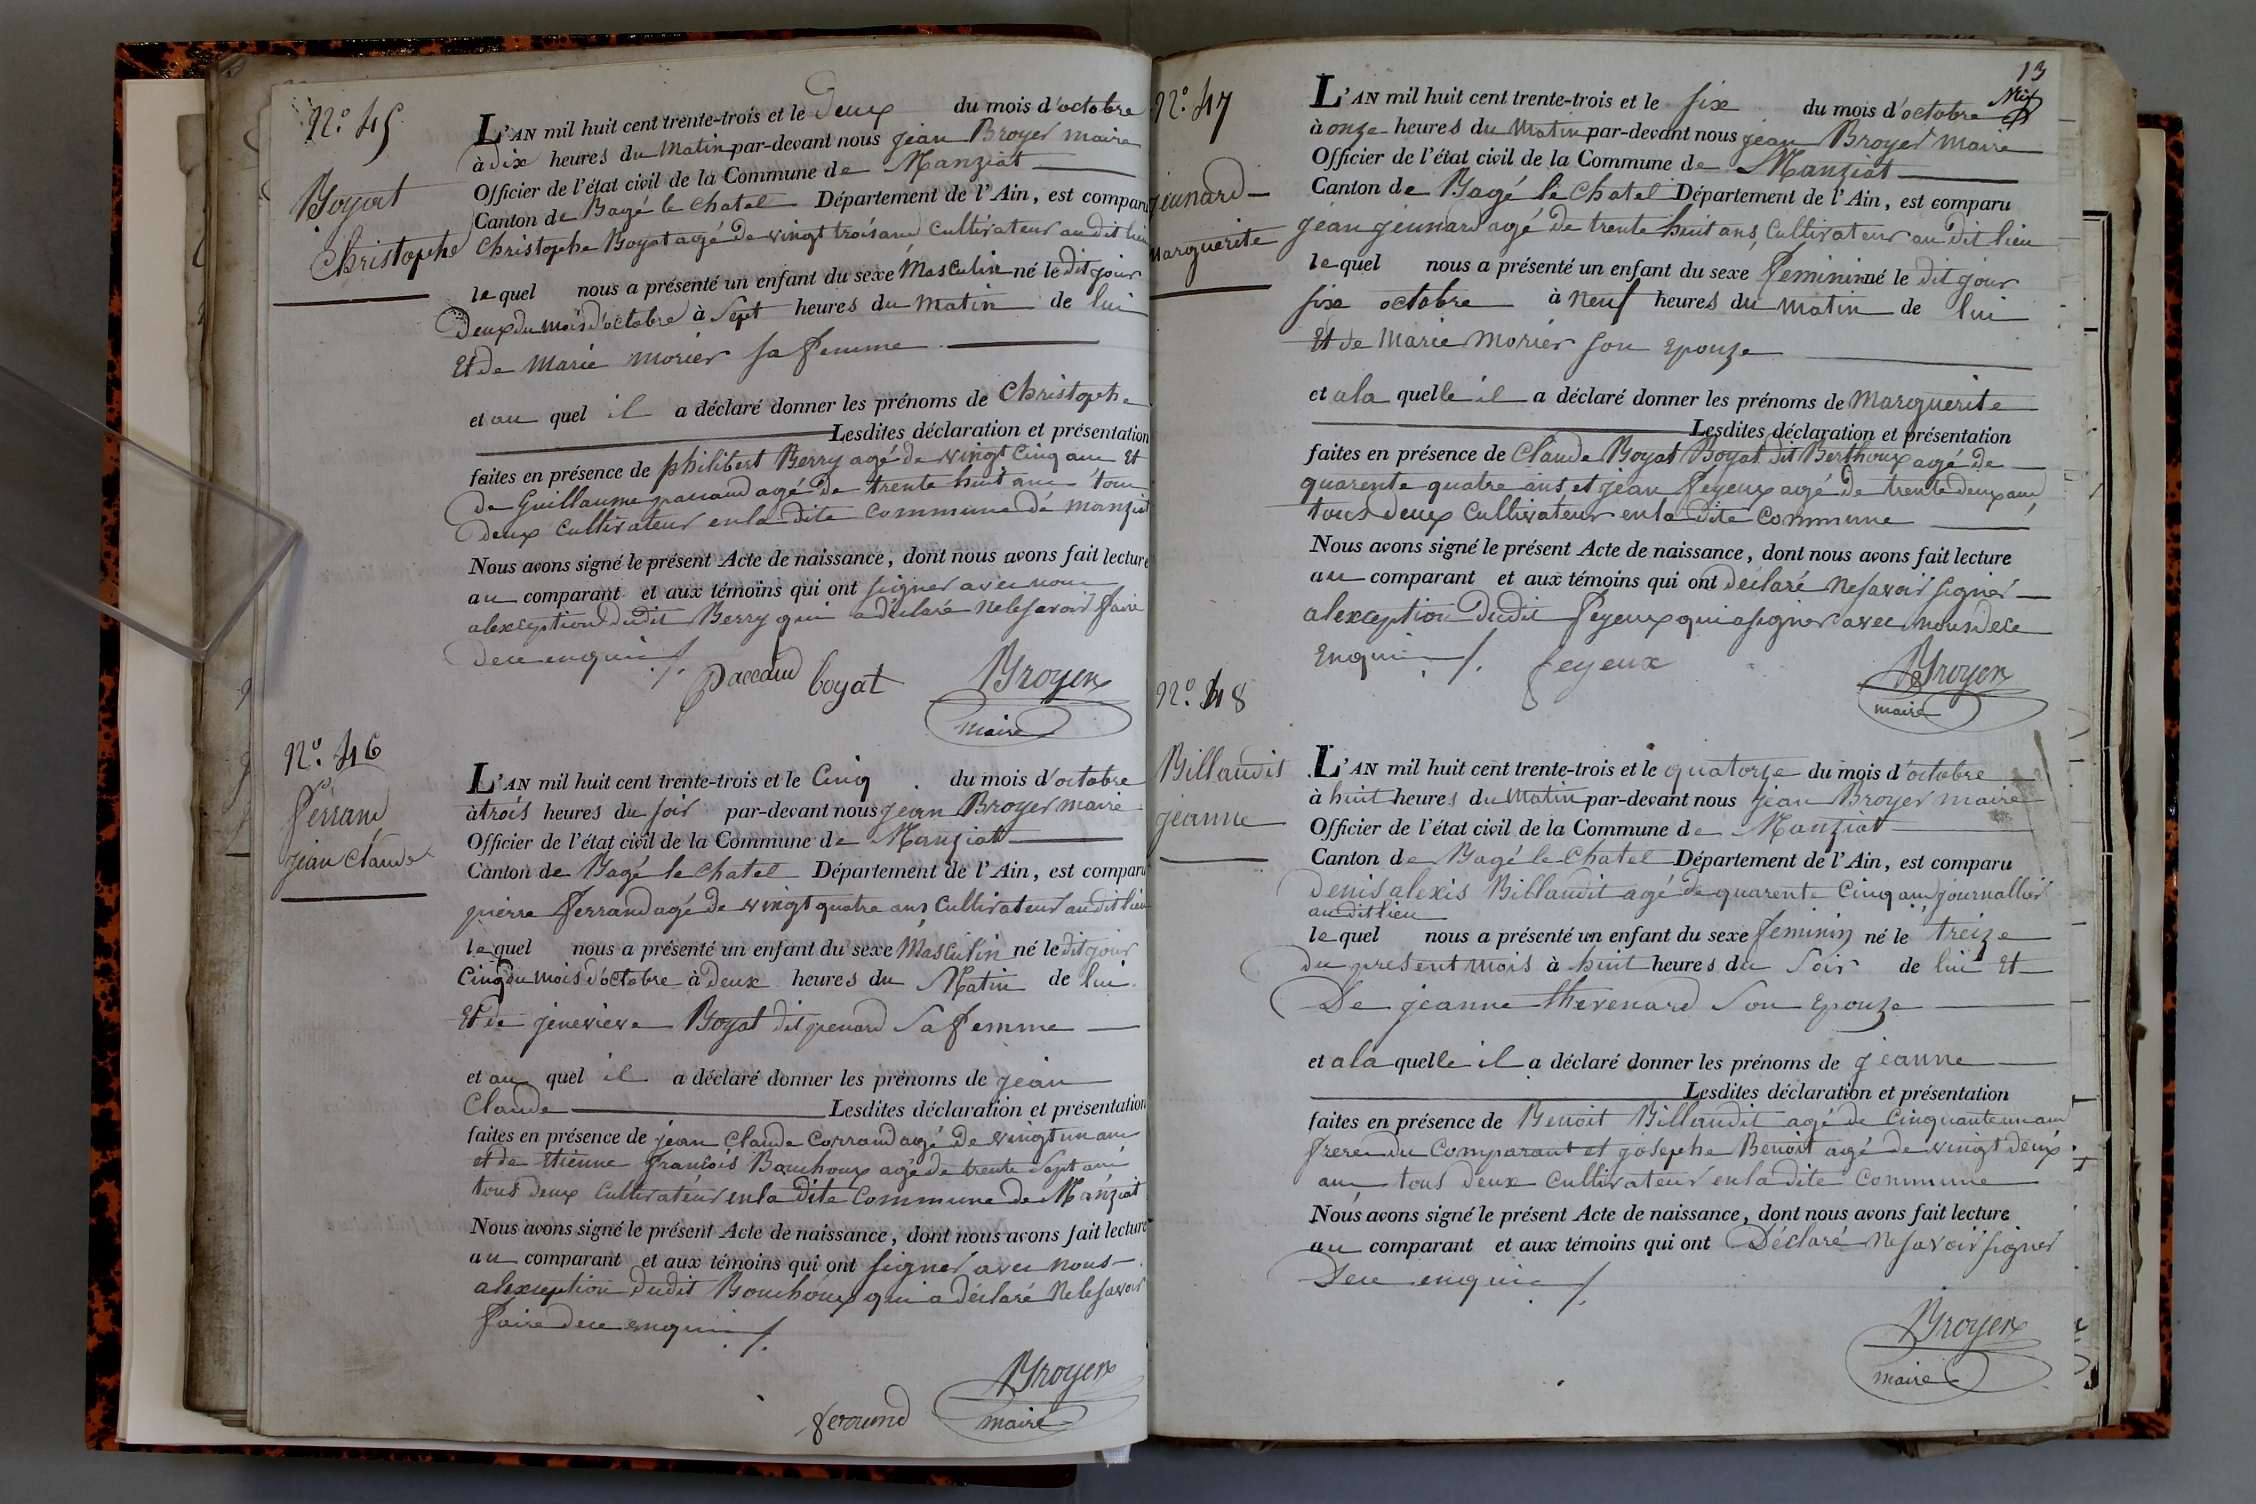 N.º 45
Boyat
Christophe
L'AN mil huit cent trente-trois et le Deux du mois d'octobre
à dix heures du Matin par-devant nous jean Broyer maire
Officier de l'état civil de la Commune de Manziat
Canton de Bagé le chatel Département de l'Ain, est comparu
Christophe Boyat agé de vingt trois ans Cultivateur au dit lieu
le quel nous a présenté un enfant du sexe Masculin né le dit jour
Deux du mois d'octobre à Sept heures du Matin de lui
Et de Marie Morier sa femme
et au quel il a déclaré donner les prénoms de Christophe
Lesdites déclaration et présentation
faites en présence de philibert Berry agé de vingt Cinq ans Et
de Guillaume paccaud agé de trente huit ans tous
Deux Cultivateur en la dite Commune de manziat
Nous avons signé le présent Acte de naissance, dont nous avons fait lecture
au comparant et aux témoins qui ont signer avec nous
alexception dudit Berry qui a déclaré ne le savoir faire
dece enquis /.
Paccaud boyat Broyer
maire
N.º 46
ferrand
jean Claude
L'AN mil huit cent trente-trois et le Cinq du mois d'octobre
à trois heures du soir par-devant nous jean Broyer maire
Officier de l'état civil de la Commune de Manziat
Canton de Bagé le chatel Département de l'Ain, est comparu
pierre ferrand agé de vingt quatre ans Cultivateur au dit lieu
le quel nous a présenté un enfant du sexe Masculin né le dit jour
Cinq du mois d'octobre à deux heures du Matin de lui
Et de jenevieve Boyat dit penard Sa femme
et au quel il a déclaré donner les prénoms de jean
Claude Lesdites déclaration et présentation
faites en présence de jean Claude Corrand agé de vingt un ans
et de Etienne francois Bouchoux agé de trente Sept ans
tous deux Cultivateur en la dite Commune de Manziat
Nous avons signé le présent Acte de naissance, dont nous avons fait lecture
au comparant et aux témoins qui ont signer avec nous
alexception dudit Bouchoux qui a déclaré ne le savoir
faire dece enquis /.
Broyer
ferrand maire
13
N.º 47
jeunard
Marguerite
L'AN mil huit cent trente-trois et le six du mois d'octobre
à onze heures du Matin par-devant nous jean Broyer Maire
Officier de l'état civil de la Commune de Manziat
Canton de Bagé le Chatel Département de l'Ain, est comparu
jean jeunard agé de trente huit ans Cultivateur au dit lieu
le quel nous a présenté un enfant du sexe feminin né le dit jour
six octobre à Neuf heures du matin de lui
Et de Marie Morier son Epouze
et a la quelle il a déclaré donner les prénoms de Marguerite
Lesdites déclaration et présentation
faites en présence de Claude Boyat Boyat dit Berthoux agé de
quarente quatre ans et jean feyeux agé de trente deux ans
tous deux Cultivateur en la dite Commune
Nous avons signé le présent Acte de naissance, dont nous avons fait lecture
au comparant et aux témoins qui ont déclaré ne savoir signer
alexception dudit feyeux qui a signer avec nous dece
Enquis /. feyeux Broyer
maire
N.º 48
Billaudit
jeanne
L'AN mil huit cent trente-trois et le quatorze du mois d'octobre
à huit heures du Matin par-devant nous jean Broyer maire
Officier de l'état civil de la Commune de Manziat
Canton de Bagé le Chatel Département de l'Ain, est comparu
Denis alexis Billaudit agé de quarente Cinq ans journallier
au dit lieu
le quel nous a présenté un enfant du sexe feminin né le treize
du present mois à huit heures du Soir de lui Et
De jeanne thevenard Son Epouze
et a la quelle il a déclaré donner les prénoms de jeanne
Lesdites déclaration et présentation
faites en présence de Benoit Billaudit agé de Cinquante un ans
frere du Comparant et josephe Benoit agé de vingt deux
ans tous deux Cultivateur en la dite Commune
Nous avons signé le présent Acte de naissance, dont nous avons fait lecture
au comparant et aux témoins qui ont Déclaré ne savoir signer
Dece enquis /.
Broyer
maire